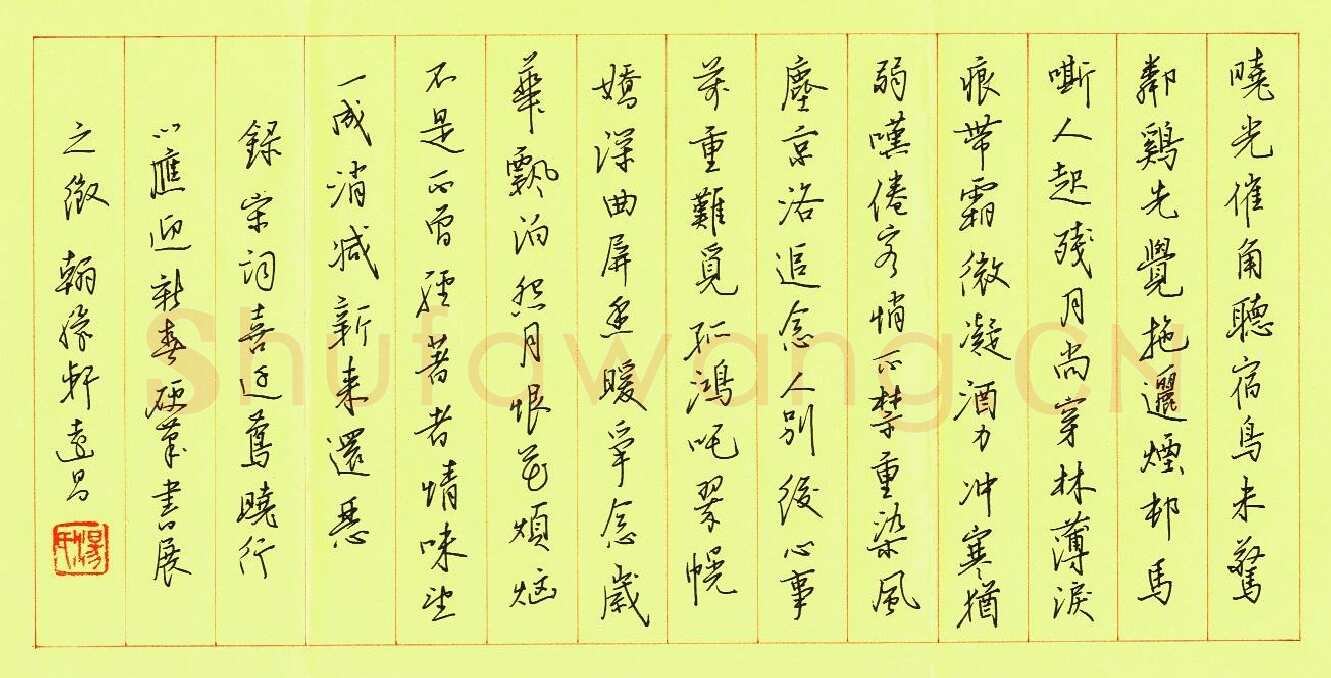 曉光催角聽宿鳥未驚
鄰鷄先覺迤邐煙邨馬
嘶人起殘月尚穿林薄淚
痕帶霜微凝酒力冲寒猶
弱嘆倦客悄不禁重染風
塵京洛追念人別後心事
萬重難覓孤鴻托翠幌
嬌深曲屏香暖爭念歲
華飄泊怨月恨花煩惱
不是不曾經著者情味望
一成消减新来還惡
錄宋詞喜迁鶯曉行
以應迎新春硬筆書展
之徵 翰緣軒遠昌
Shufawang.CN